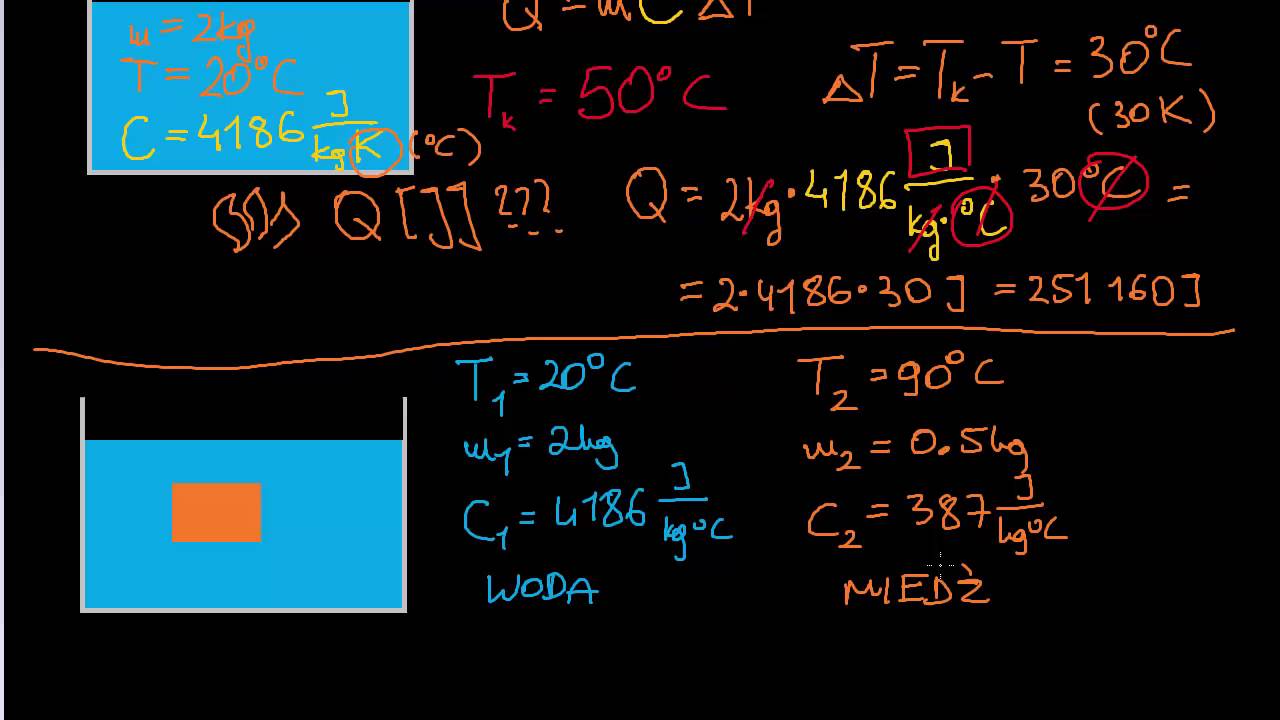 m = 2kg
T = 20°C
C = 4186 J/kg K (°C)
Q [J] ???
Q = m C ΔT
T_k = 50°C
ΔT = T_k - T = 30°C
(30K)
Q = 2kg · 4186 J/kg·°C · 30°C =
= 2·4186·30 J = 251 160 J
T₁ = 20°C
m₁ = 2kg
C₁ = 4186 J/kg°C
WODA
T₂ = 90°C
m₂ = 0.5kg
C₂ = 387 J/kg°C
MIEDŹ